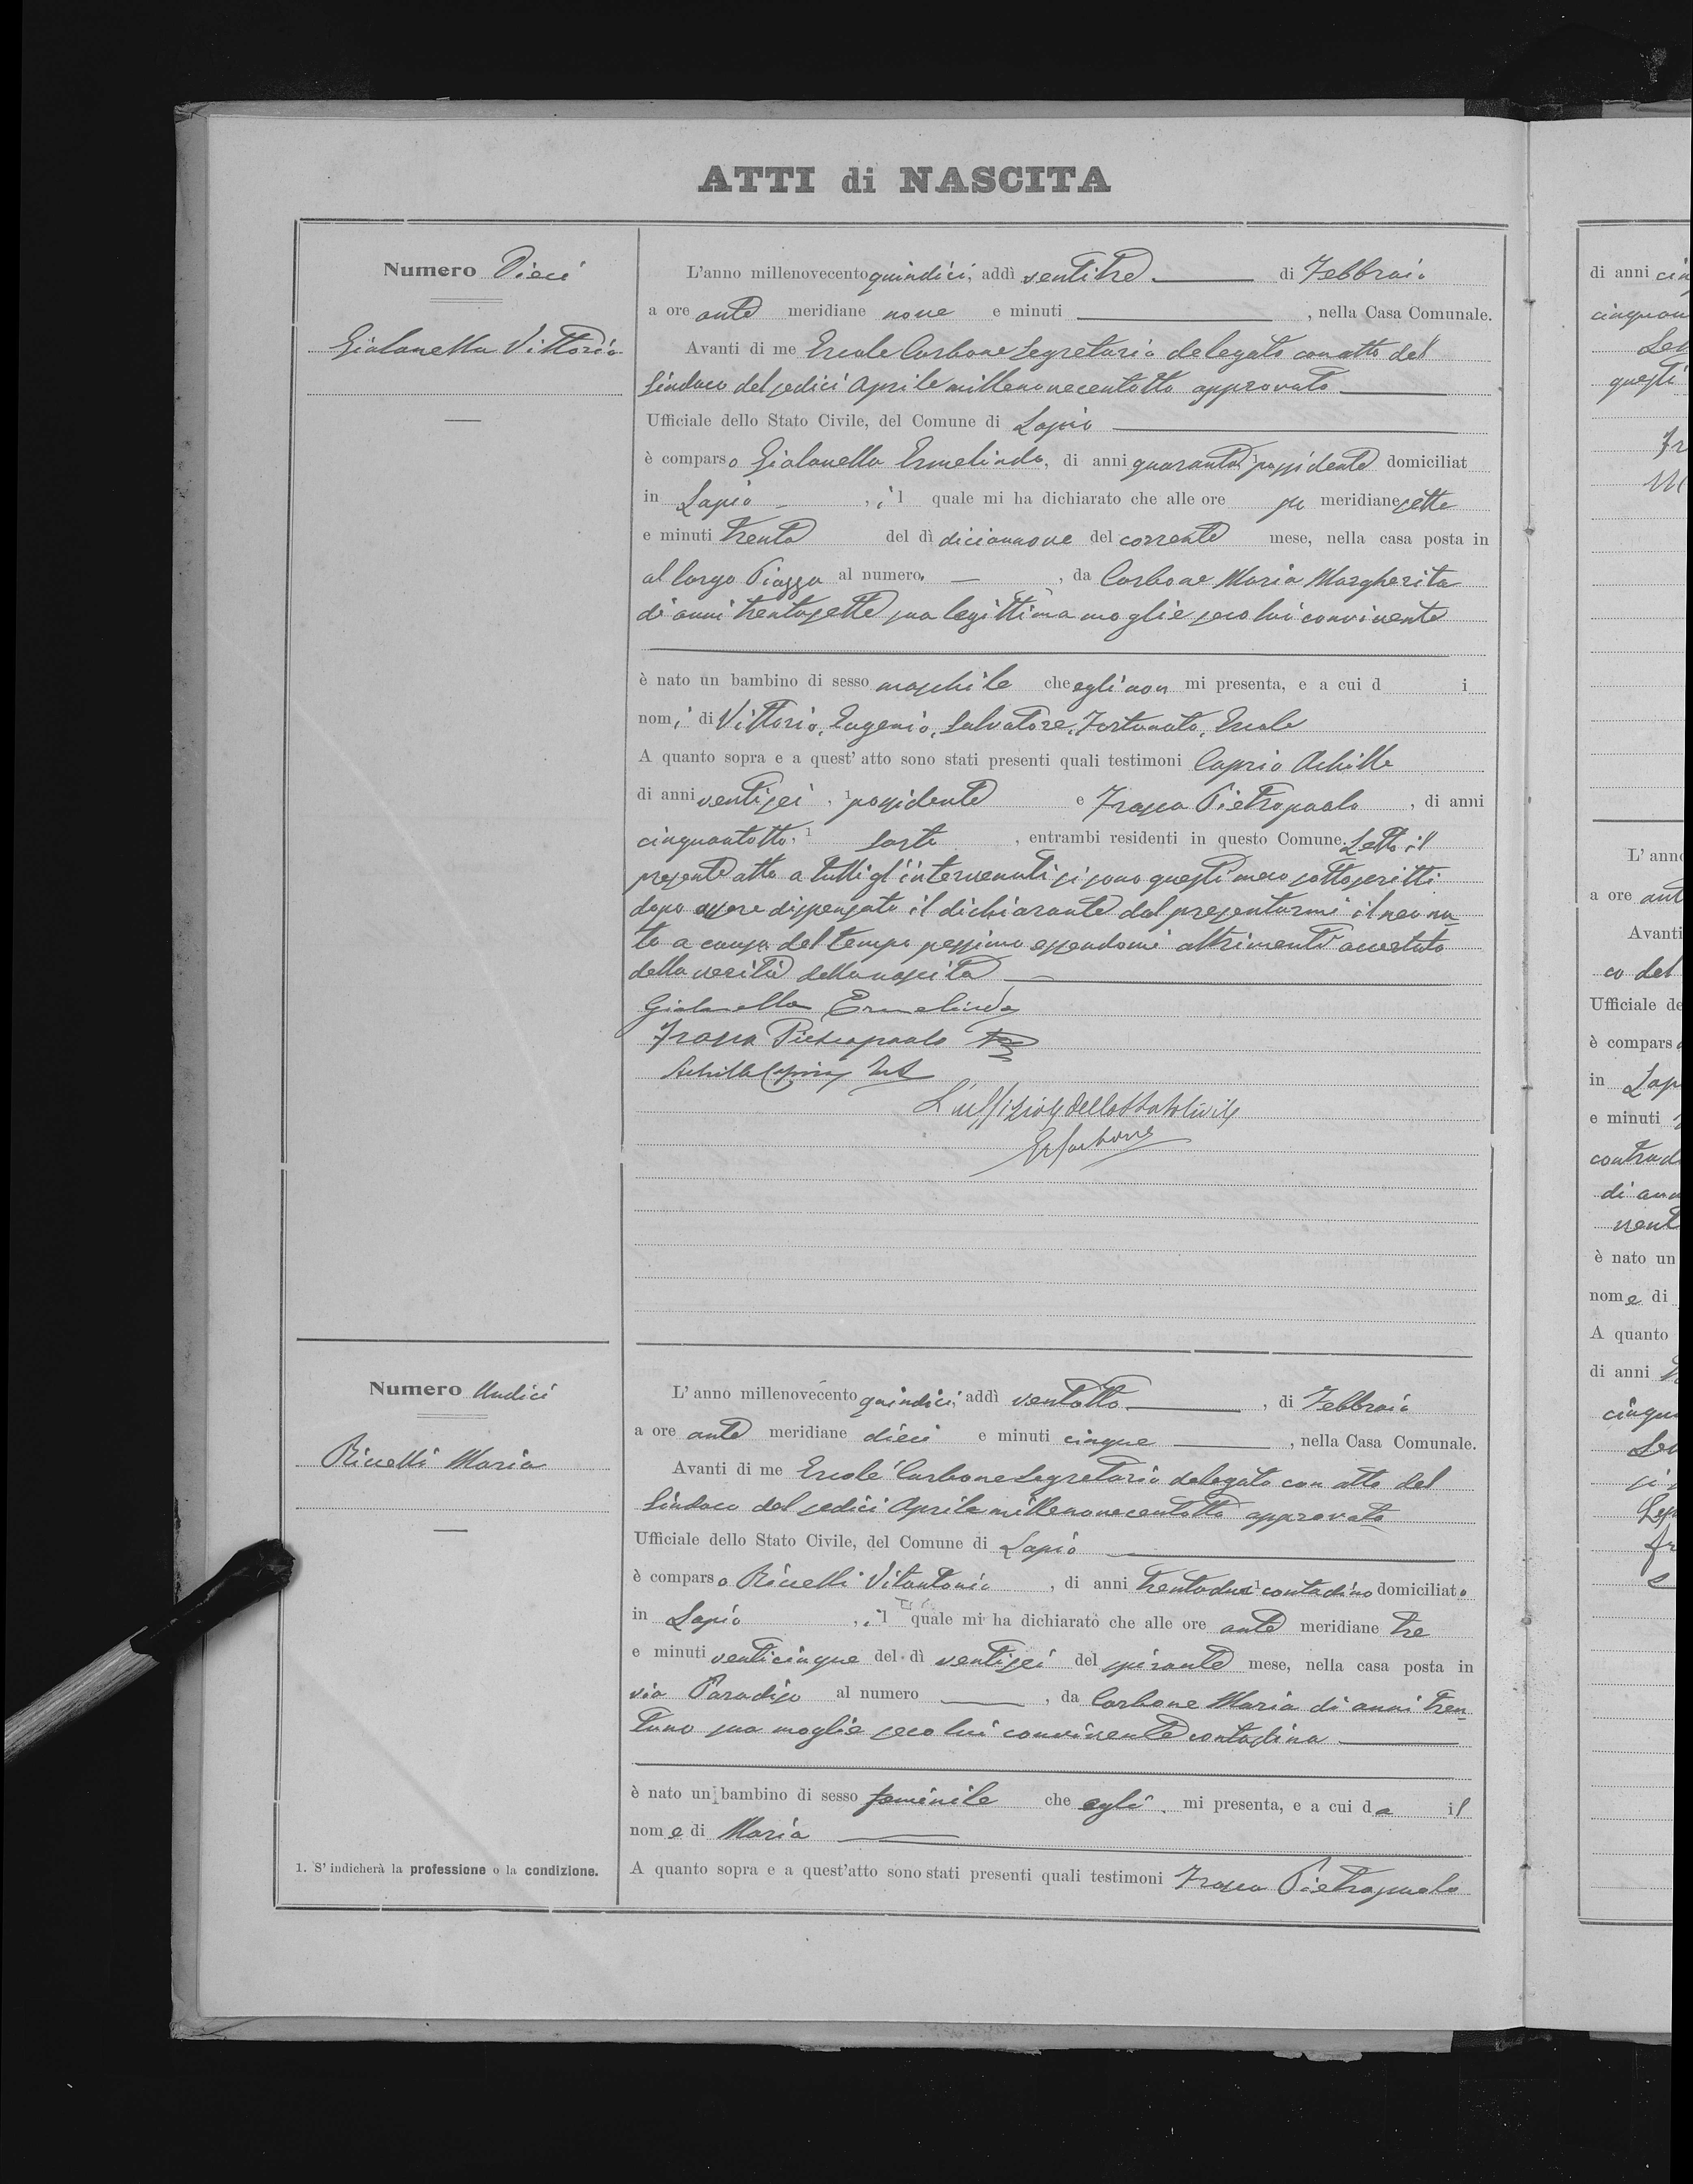 ATTI di NASCITA
Numero Dieci
Gialanella Vittorio
L'anno millenovecento quindici, addì ventitre di Febbraio
a ore ante meridiane nove e minuti , nella Casa Comunale.
Avanti di me Ercole Carbone Segretario delegato con atto del
Sindaco del sedici Aprile millenovecentotto approvato
Ufficiale dello Stato Civile, del Comune di Lapio
è comparso Gialanella Ermelindo, di anni quaranta 1 possidente domiciliat
in Lapio , il quale mi ha dichiarato che alle ore po meridiane sette
e minuti trenta del dì diciannove del corrente mese, nella casa posta in
al largo Piazza al numero — , da Carbone Maria Margherita
di anni trentasette sua legittima moglie seco lui convivente
è nato un bambino di sesso maschile che egli non mi presenta, e a cui d i
nomi di Vittorio, Eugenio, Salvatore, Fortunato, Ercole
A quanto sopra e a quest' atto sono stati presenti quali testimoni Caprio Achille
di anni ventisei , 1 possidente e Frasca Pietropaolo , di anni
cinquantotto, 1 sarto , entrambi residenti in questo Comune. Letto il
presente atto a tutti gl'intervenuti si sono questi meco sottoscritti
dopo essere dispensato il dichiarante dal presentarmi il neona-
to a causa del tempo pessimo essendomi altrimenti accertato
della verità della nascita
Gialanella Ermelindo
Frasca Pietropaolo
Achille Caprio
L'uffiziale dello Stato Civile
E. Carbone
Numero Undici
Riccelli Maria
L' anno millenovecento quindici, addì ventotto , di Febbraio
a ore ante meridiane dieci e minuti cinque , nella Casa Comunale.
Avanti di me Ercole Carbone Segretario delegato con atto del
Sindaco del sedici Aprile millenovecentotto approvato
Ufficiale dello Stato Civile, del Comune di Lapio
è comparso Riccelli Vitantonio , di anni trentadue 1 contadino domiciliato
in Lapio , il quale mi ha dichiarato che alle ore ante meridiane tre
e minuti venticinque del dì ventisei del spirante mese, nella casa posta in
via Paradiso al numero , da Carbone Maria di anni tren-
tuno sua moglie seco lui convivente contadina
è nato un bambino di sesso feminile che egli mi presenta, e a cui da il
nome di Maria
A quanto sopra e a quest'atto sono stati presenti quali testimoni Frasca Pietropaolo
1. S' indicherà la professione o la condizione.
di anni
L' anno
a ore ant
Avanti
co del
Ufficiale de
è compars
in Lap
e minuti
è nato un
nome di
A quanto
di anni